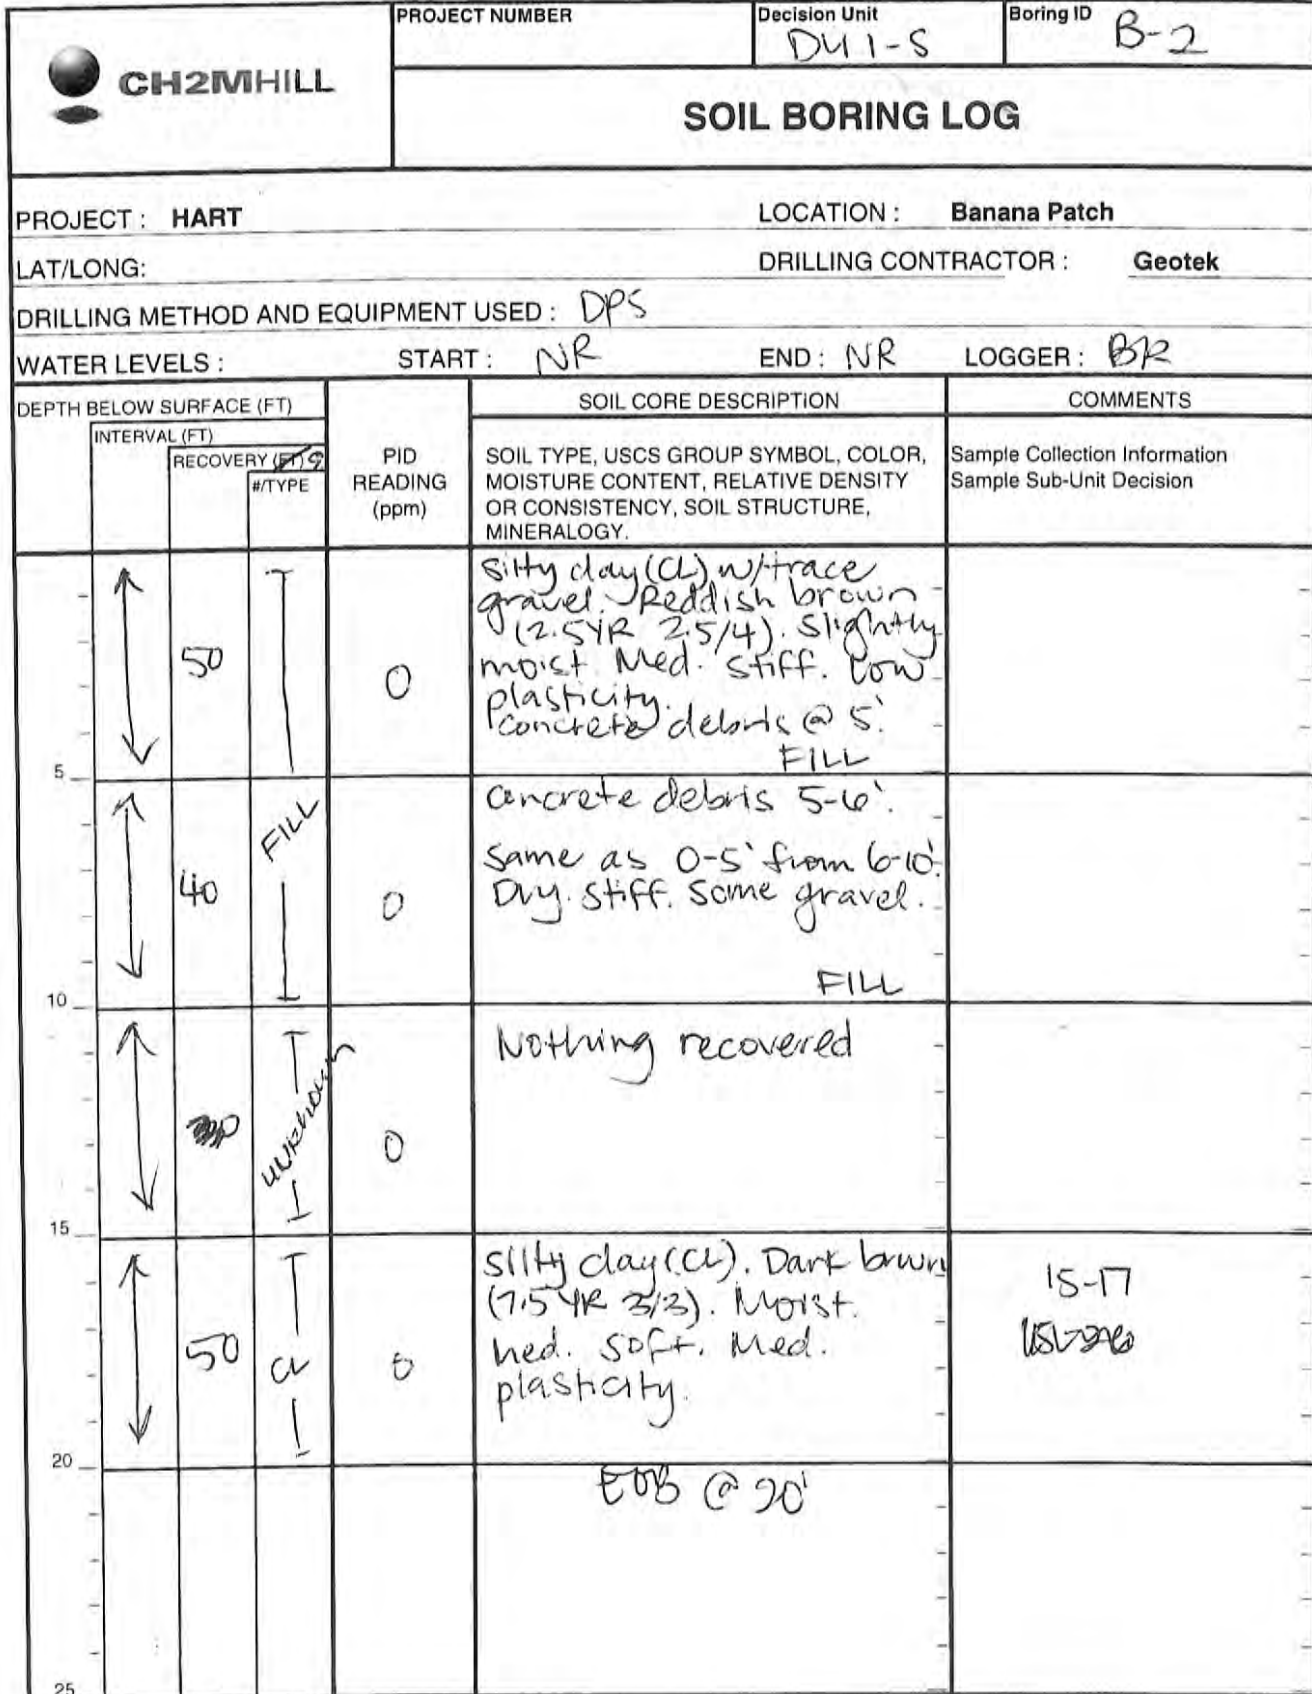 CH2MHILL
PROJECT NUMBER
Decision Unit
DU 1-S
Boring ID
B-2
SOIL BORING LOG
PROJECT : HART
LOCATION : Banana Patch
LAT/LONG:
DRILLING CONTRACTOR : Geotek
DRILLING METHOD AND EQUIPMENT USED : DPS
WATER LEVELS : START : NR END : NR LOGGER : BR
DEPTH BELOW SURFACE (FT)
INTERVAL (FT)
RECOVERY (FT)
#/TYPE
PID
READING
(ppm)
SOIL CORE DESCRIPTION
SOIL TYPE, USCS GROUP SYMBOL, COLOR,
MOISTURE CONTENT, RELATIVE DENSITY
OR CONSISTENCY, SOIL STRUCTURE,
MINERALOGY.
COMMENTS
Sample Collection Information
Sample Sub-Unit Decision
50
0
Silty clay (CL) w/trace
gravel. Reddish brown
(2.5YR 2.5/4). Slightly
moist. Med. stiff. Low
plasticity.
Concrete debris @ 5'.
FILL
5
40
FILL
0
Concrete debris 5-6'.
Same as 0-5' from 6-10'.
Dry. Stiff. Some gravel.
FILL
10
unknown
0
Nothing recovered
15
50
CL
0
Silty clay (CL). Dark brown
(7.5 YR 3/3). Moist.
Med. soft. Med.
plasticity.
15-17
20
EOB @ 20'
25